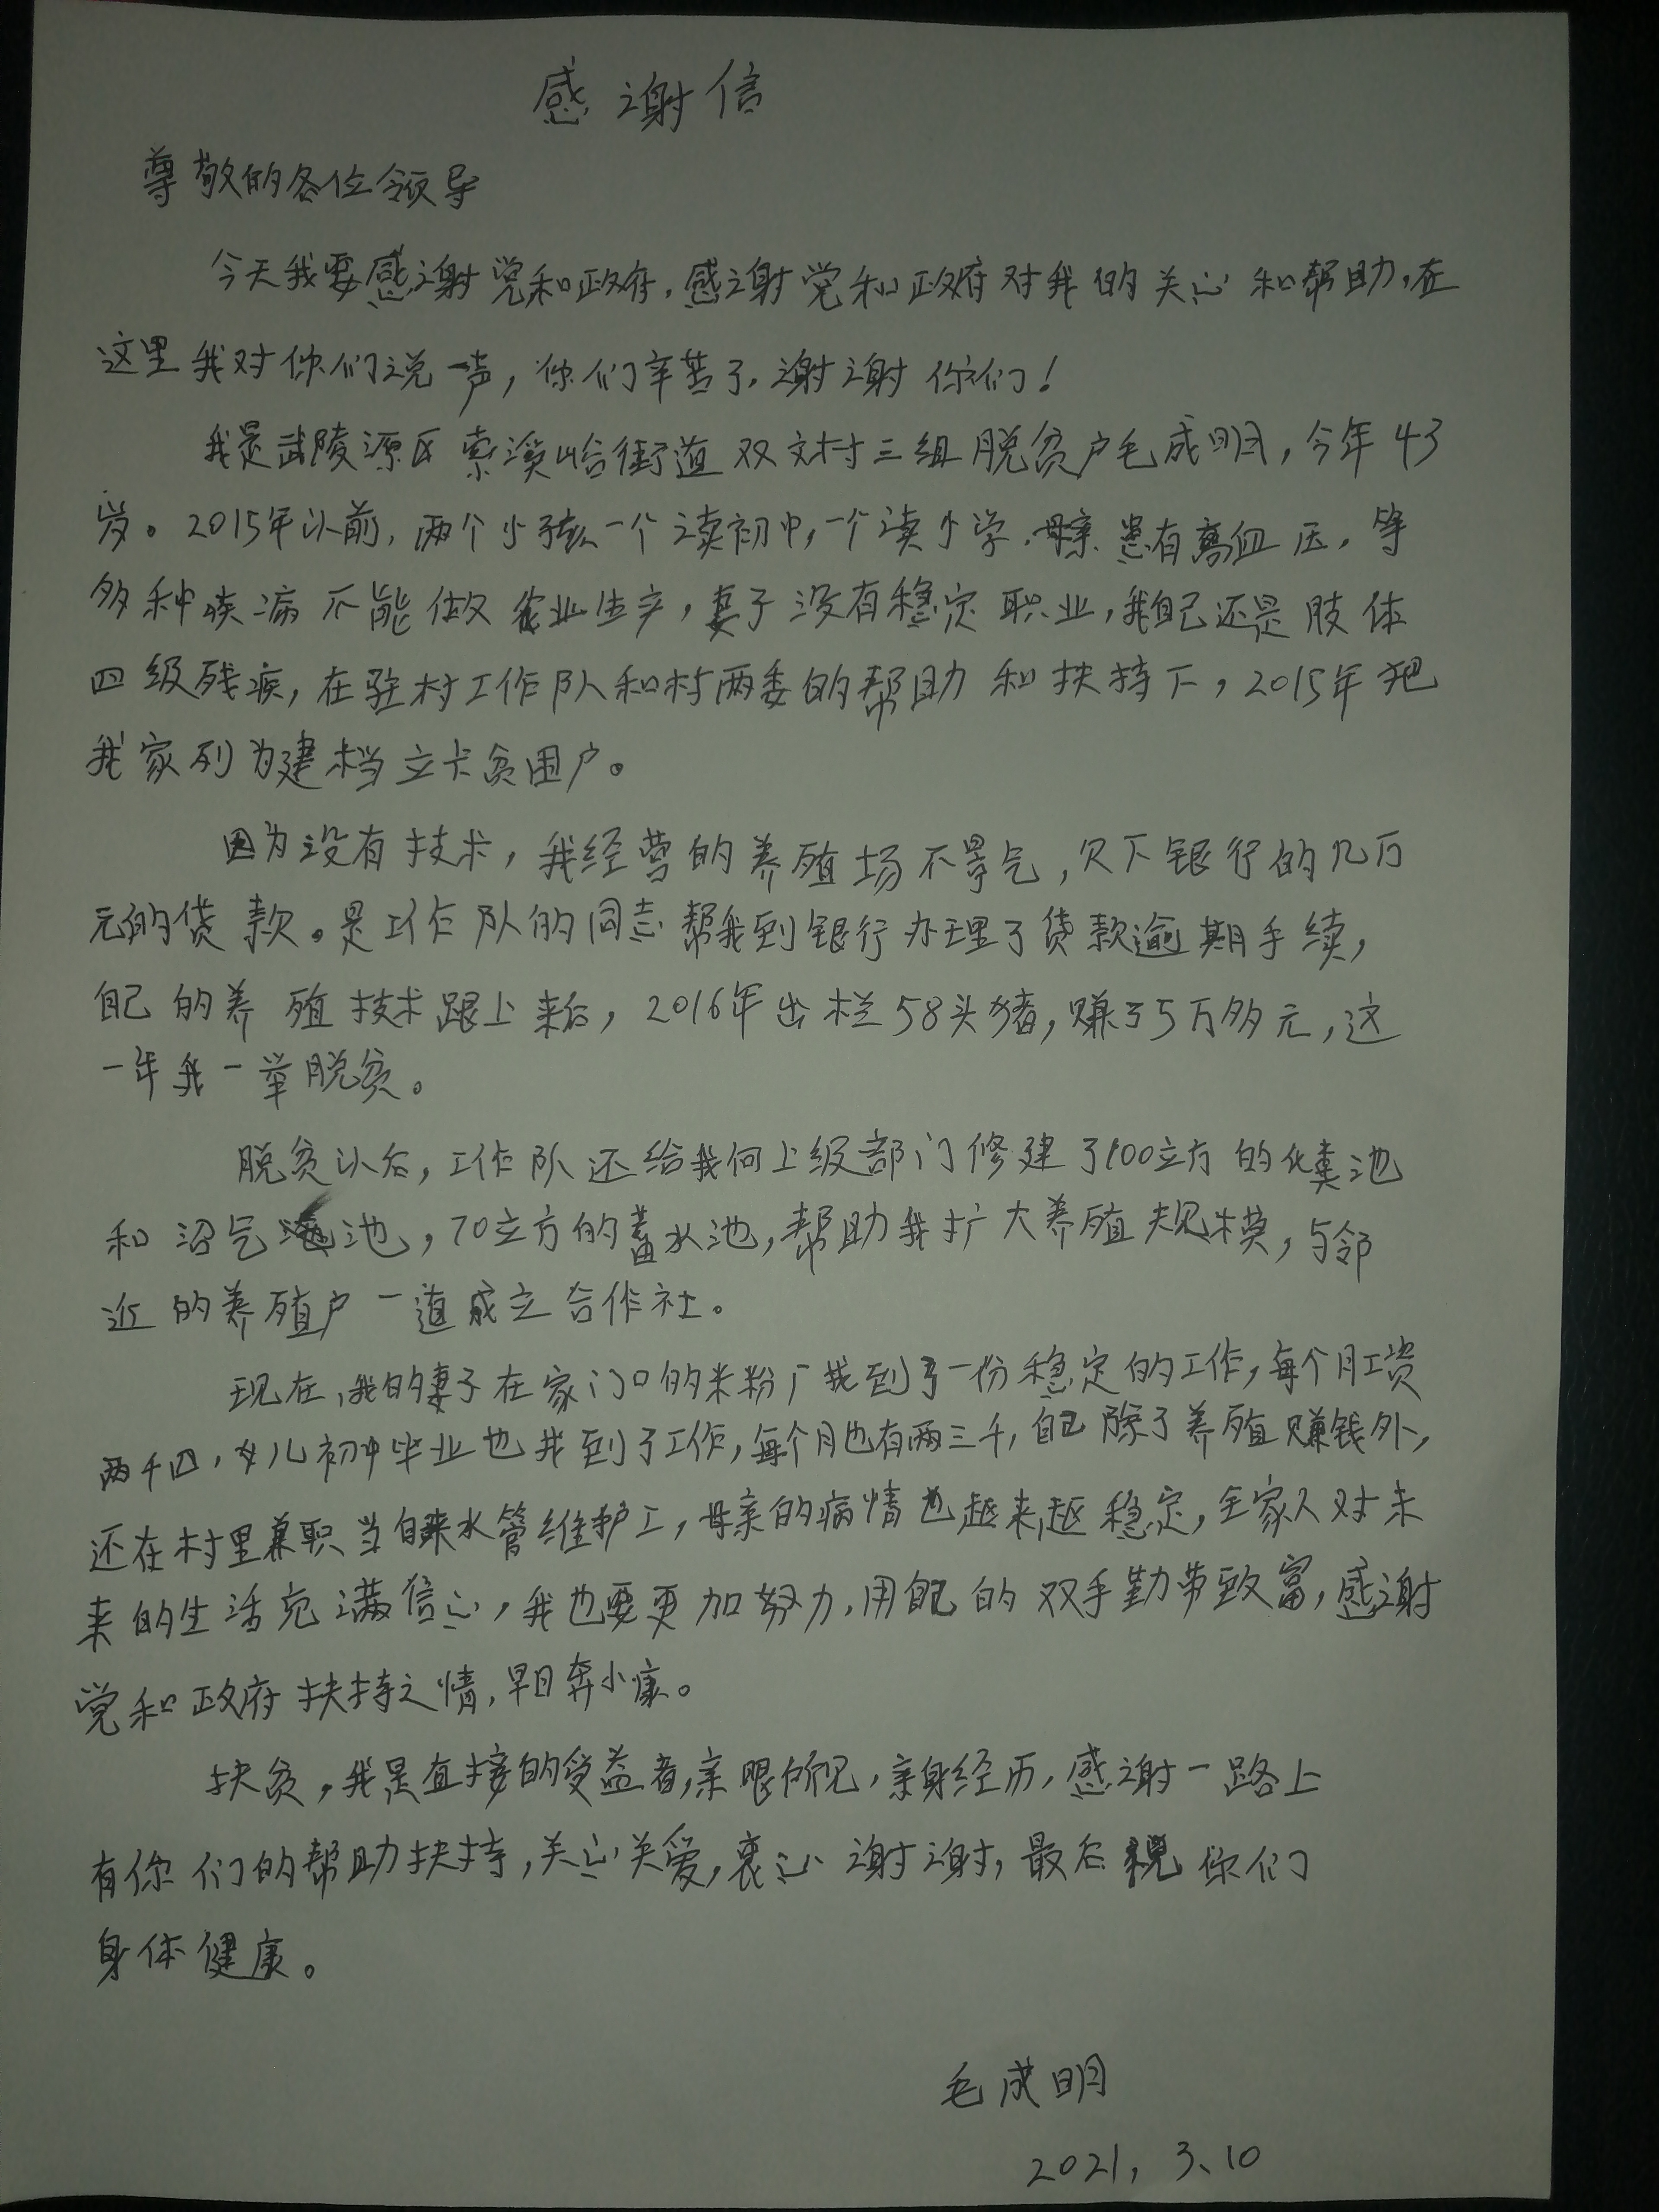 感谢信
尊敬的各位领导
今天我要感谢党和政府，感谢党和政府对我的关心和帮助，在
这里我对你们说一声，你们辛苦了，谢谢你们！
我是武陵源区索溪峪街道双文村三组脱贫户毛成明，今年43
岁。2015年以前，两个小孩一个读初中，一个读小学，母亲患有高血压，等
多种疾病不能做农业生产，妻子没有稳定职业，我自己还是肢体
四级残疾，在驻村工作队和村两委的帮助和扶持下，2015年把
我家列为建档立卡贫困户。
因为没有技术，我经营的养殖场不景气，欠下银行的几万
元的贷款。是工作队的同志帮我到银行办理了贷款逾期手续，
自己的养殖技术跟上来后，2016年出栏58头猪，赚了5万多元，这
一年我一举脱贫。
脱贫以后，工作队还给我向上级部门修建了100立方的化粪池
和沼气池，70立方的蓄水池，帮助我扩大养殖规模，与邻
近的养殖户一道成立合作社。
现在，我的妻子在家门口的米粉厂找到了一份稳定的工作，每个月工资
两千四，女儿初中毕业也找到了工作，每个月也有两三千，自己除了养殖赚钱外，
还在村里兼职当自来水管维护工，母亲的病情也越来越稳定，全家人对未
来的生活充满信心，我也要更加努力，用自己的双手勤劳致富，感谢
党和政府扶持之情，早日奔小康。
扶贫，我是直接的受益者，亲眼所见，亲身经历，感谢一路上
有你们的帮助扶持，关心关爱，衷心谢谢，最后祝你们
身体健康。
毛成明
2021，3、10